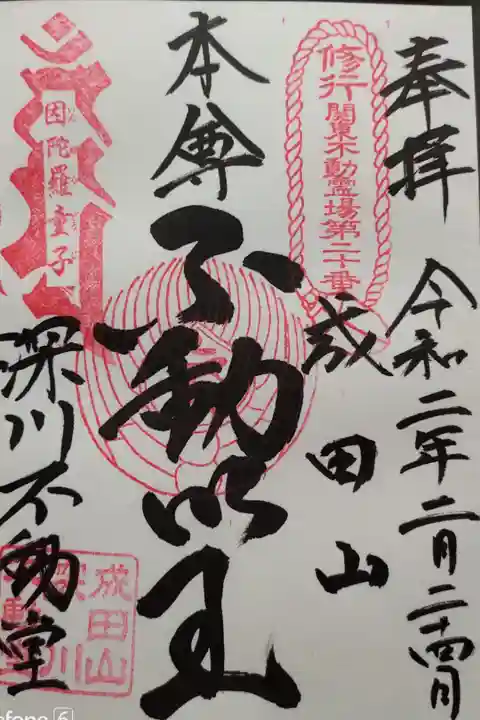 奉拝
令和二年二月二十四日
修行
関東不動霊場第二十番
成田山
本尊
不動明王
因陀羅童子
深川不動堂
成田山